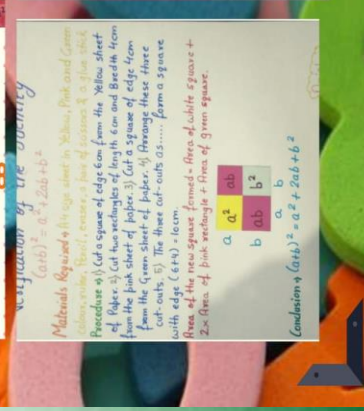 Verification of the Identity
(a+b)² = a² + 2ab + b²
Materials Required → A4 size sheet in Yellow, Pink and Green
colour, ruler, Pencil, eraser, a pair of scissors & a glue stick
Procedure → 1) Cut a square of edge 6cm from the Yellow sheet
of Paper. 2) Cut two rectangles of length 6cm and Breadth 4cm
from the pink sheet of paper. 3) Cut a square of edge 4cm
from the Green sheet of paper. 4) Arrange these three
cut-outs. 5) The three cut-outs as..... form a square
with edge (6+4) = 10cm.
Area of the new square formed = Area of white square +
2 x Area of pink rectangle + Area of green square.
a a² ab
b ab b²
a b
Conclusion → (a+b)² = a² + 2ab + b²